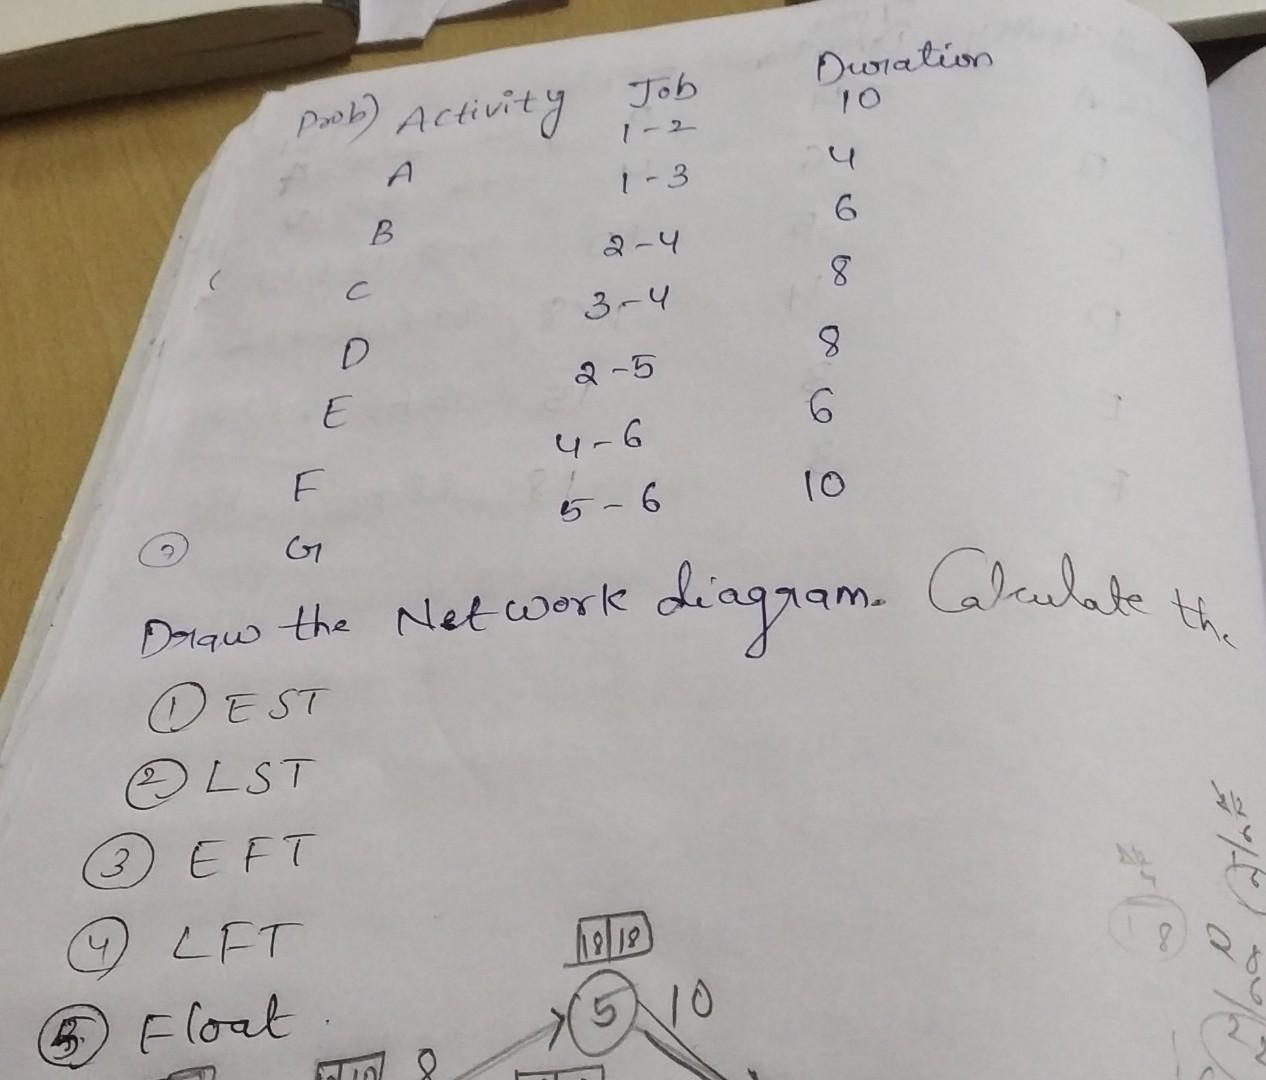 Prob) Activity Job Duration
A 1-2 10
B 1-3 4
C 2-4 6
D 3-4 8
E 2-5 8
F 4-6 6
G 5-6 10
Draw the Network diagram. Calculate the
① EST
② LST
③ EFT
④ LFT
⑤ Float.
18 18
5 10
8